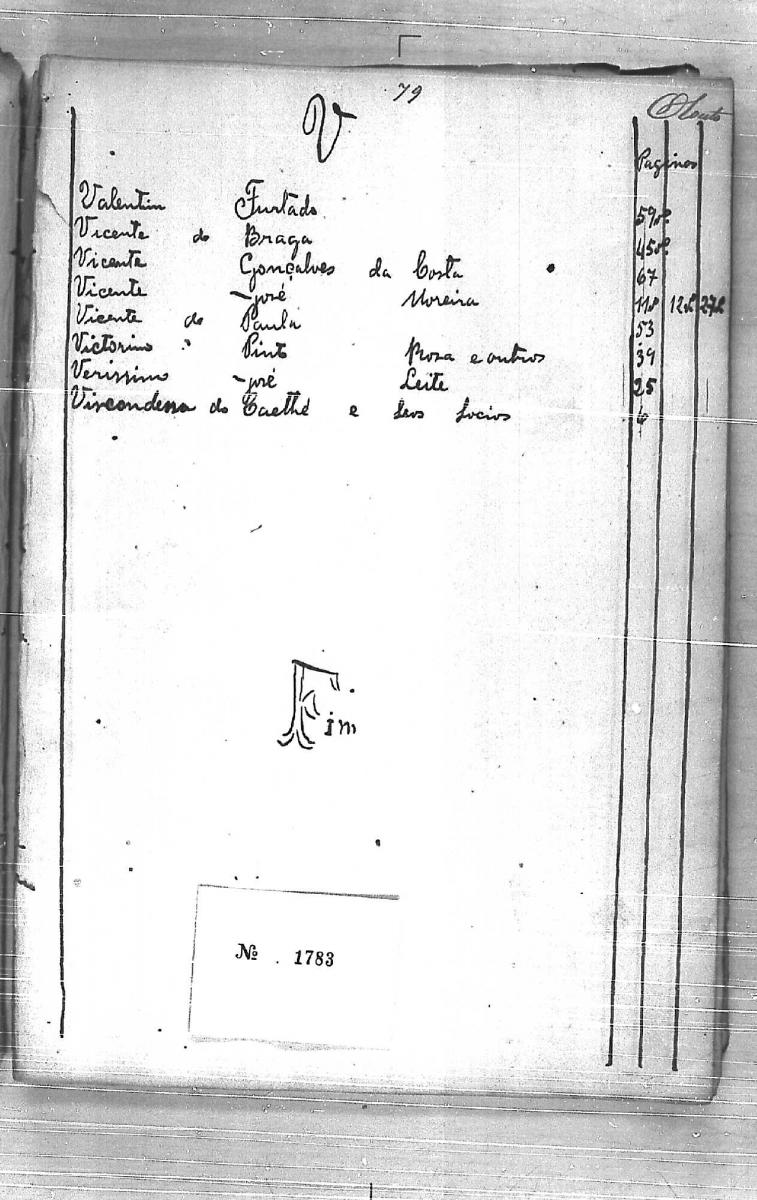 79
V
Paginas
Valentim Furtado 59vº
Vicente de Braga 45vº
Vicente Gonçalves da Costa 67
Vicente José Moreira 11vº 12vº 27vº
Vicente de Paula 53
Victorino Pinto Rosa e outros 39
Verissimo José Leite 25
Viscondessa do Caethé e seus socios 6
Fim
Nº 1783